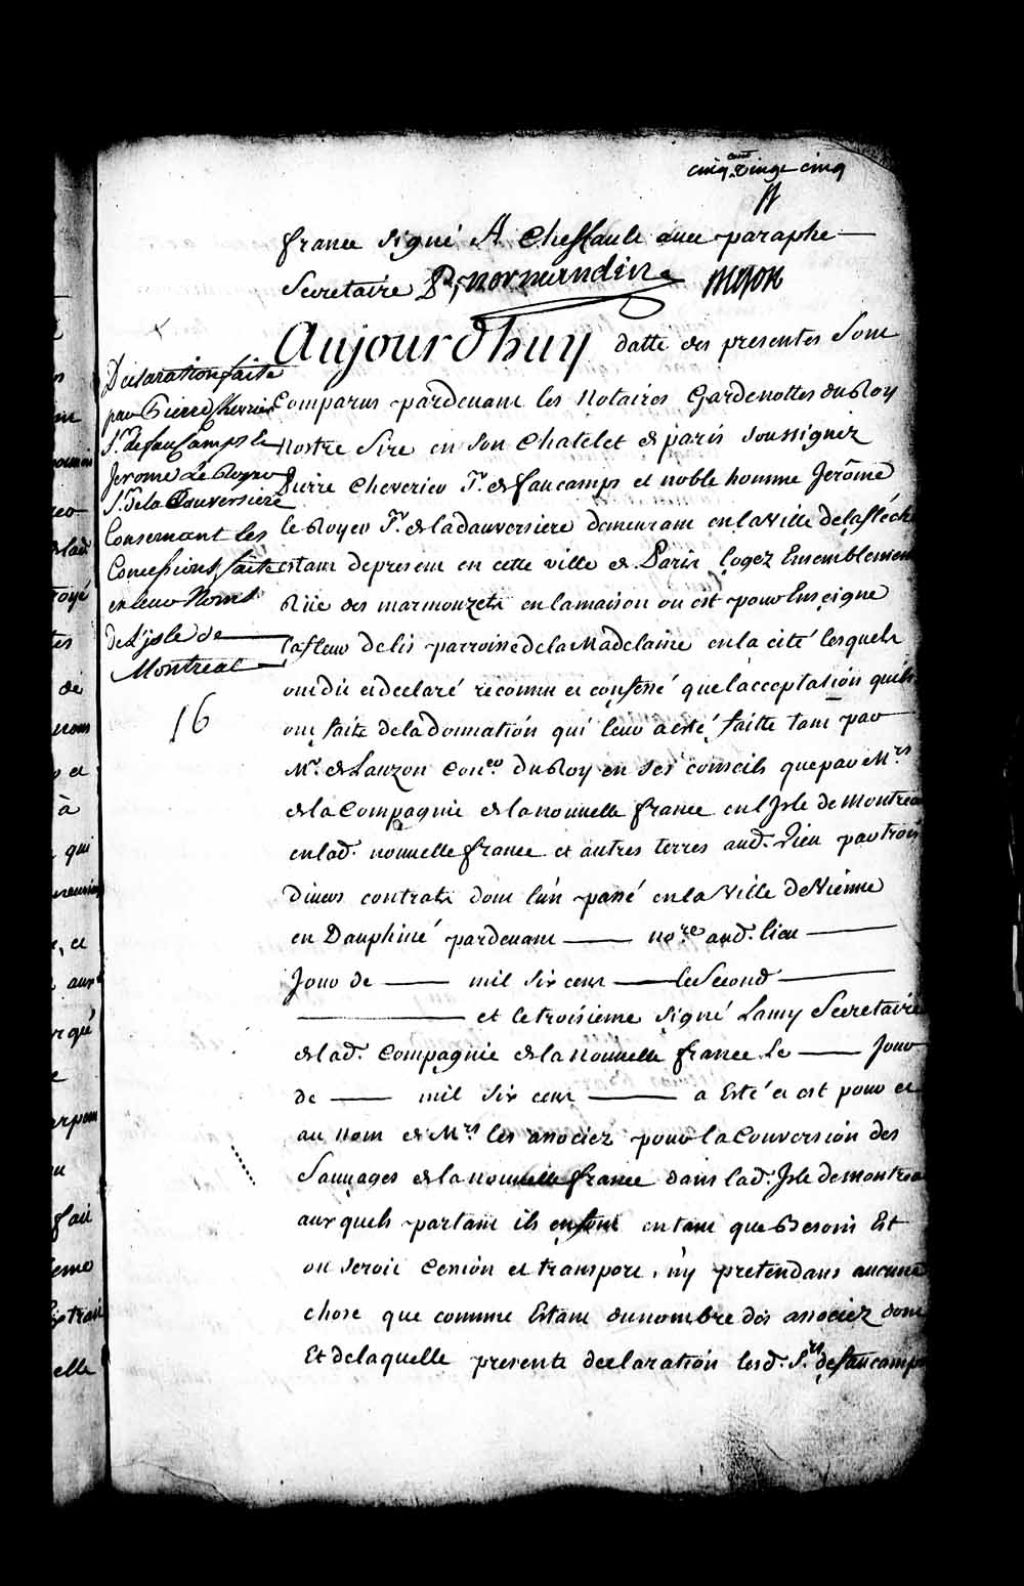 cinq cent vingt cinq
france signé A Cheffault auec paraphe
Secretaire P, normandin
Aujourdhuy datte des presentes Sont
Comparus pardeuant les Notaires Gardenottes du Roy
nostre Sire en son Chatelet de paris soussignez
Pierre Cheverier Sr. de faucamps et noble homme Jerôme
le Royer Sr. de la dauversiere demeurant en la ville de la fléche
estant de present en cette ville de Paris logez Ensemblement
Rüe des marmouzets en la maison ou est pour Enseigne
la fleur de lis parroisse de la Madelaine en la cité lesquels
ont dit et declaré reconnu et confessé que l'acceptation quils
ont faite de la donnation qui leur a esté faitte tant par
Mr. de Lauzon Coner. du Roy en ses conseils que par Mrs
de la Compagnie de la nouuelle france en l'Isle de Montreal
en lad. nouuelle france et autres terres aud. Lieu par trois
diuers contrats dont l'un passé en la Ville de Vienne
en Dauphiné pardeuant —— nore. aud. lieu ——
Jour de —— mil six cent —— le Second ——
—— et le troisieme signé Lamy Secretaire
de lad. Compagnie de la nouuelle france Le —— Jour
de —— mil six cent —— a Esté et est pour et
au nom de Mrs les associez pour la Conversion des
Sauuages de la nouuelle france dans lad. Isle de montreal
aux quels partant ils en font en tant que Besoin Est
ou seroit Cession et transport, n'y pretendans aucune
chose que comme Estant du nombre des associez dont
Et de laquelle presente declaration lesd. Srs. de faucamps
Declaration faite
par Pierre Chevrier
Sr. de faucamps Et
Jerome Le Royer
Sr. de la Dauversiere
Concernant les
Concessions faites
en leur Noms
de L'isle de
Montreal
16